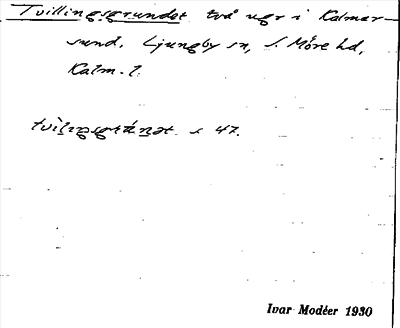 Tvillingsgrundet två ugr i Kalmar-
sund, Ljungby sn, S. Möre hd,
Kalm. l.
s 47.
Ivar Modéer 1930